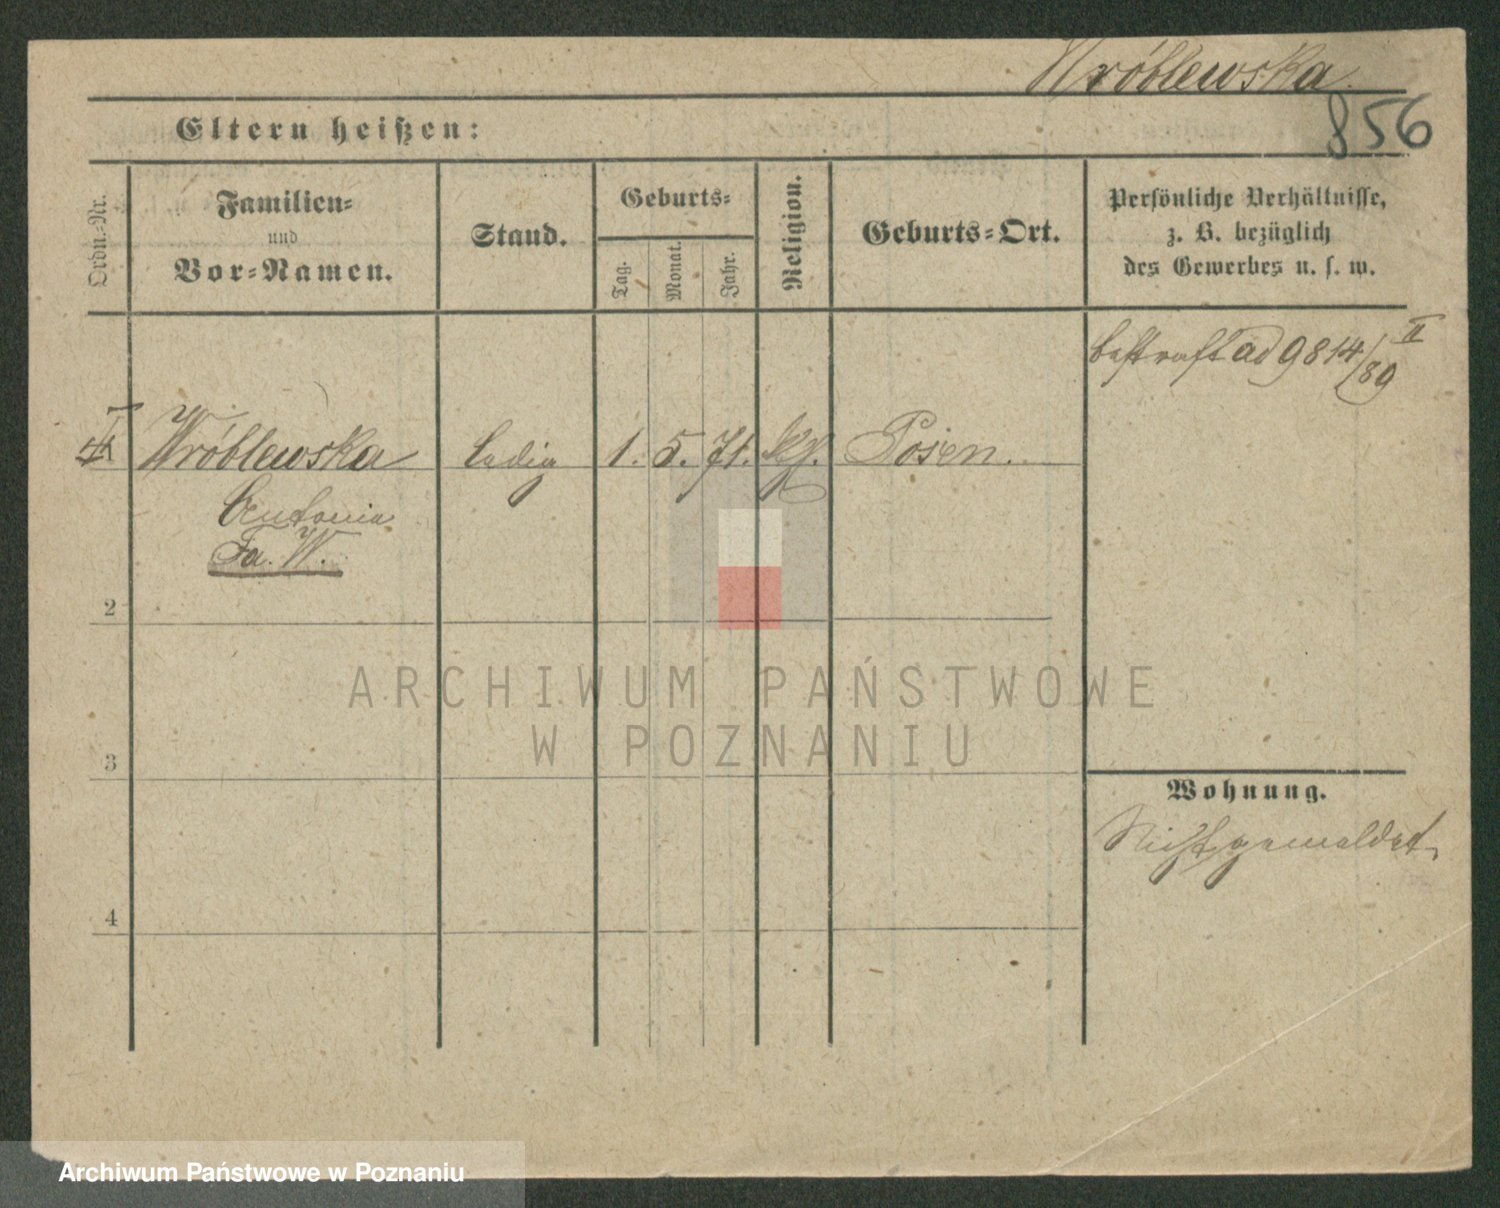 Wróblewska.
856
Eltern heißen:
Ordn.-Nr.
Familien-
und
Vor-Namen.
Stand.
Geburts-
Tag.
Monat.
Jahr.
Religion.
Geburts-Ort.
Persönliche Verhältnisse,
z. B. bezüglich
des Gewerbes u. s. w.
bestraft ad 9814/89 II
1 Wróblewska ledig 1. 5. 71. kth. Posen.
Antonia
Fa. W.
2
3
4
Wohnung.
Nicht gemeldet
ARCHIWUM PAŃSTWOWE
W POZNANIU
Archiwum Państwowe w Poznaniu